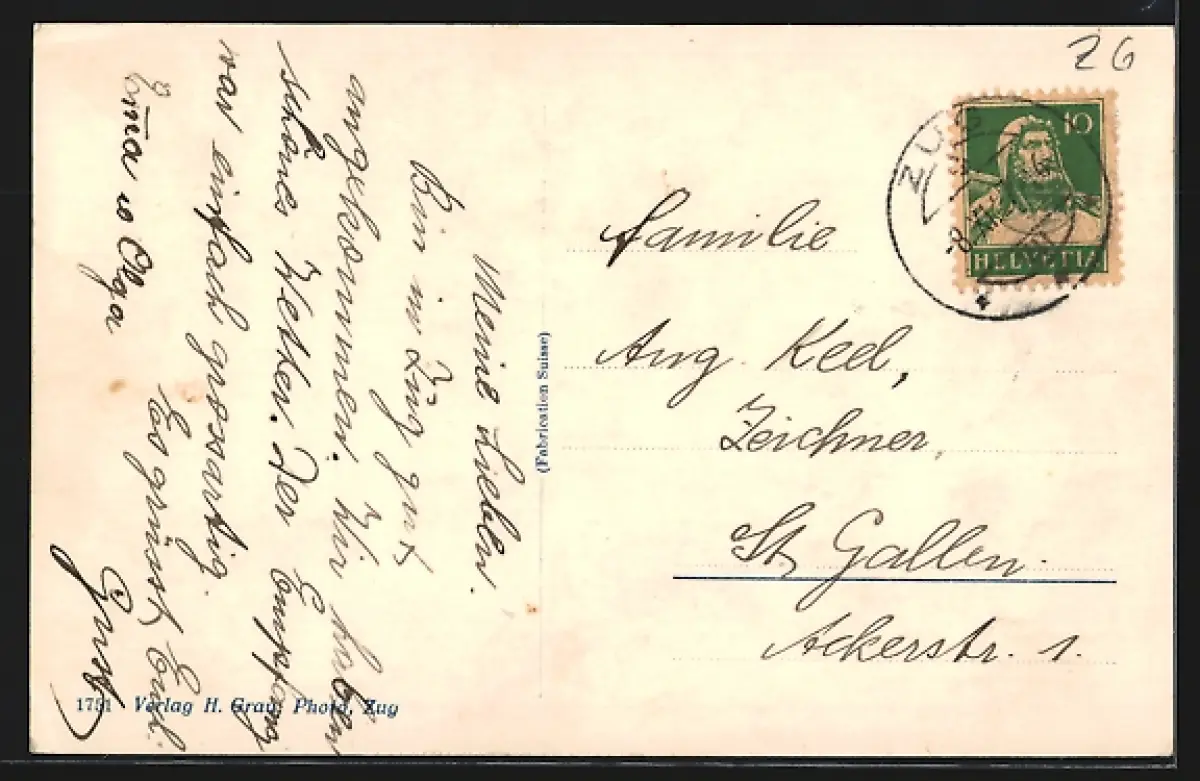 Meine Lieben.
Bin in Zug gut
angekommen. Wir haben
schönes Wetter. Der Empfang
war einfach grossartig.
Es grüsst Euch
Gust
Emma u Olga
(Fabrication Suisse)
1731 Verlag H. Grau, Photo, Zug
Z G
ZUG
8. XII
10
HELVETIA
Familie
Aug. Keel,
Zeichner,
St. Gallen
Ackerstr. 1.